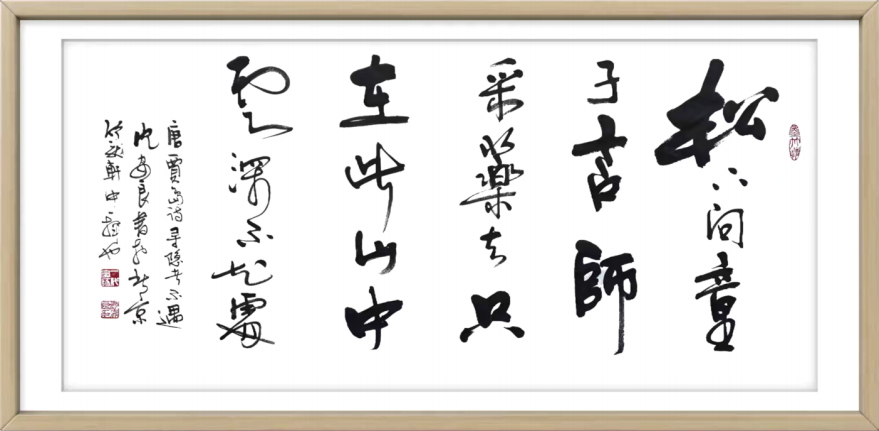 松下问童
子言師
采藥去只
在此山中
雲深不知處
唐賈島詩尋隱者不遇
良書於京
軒中